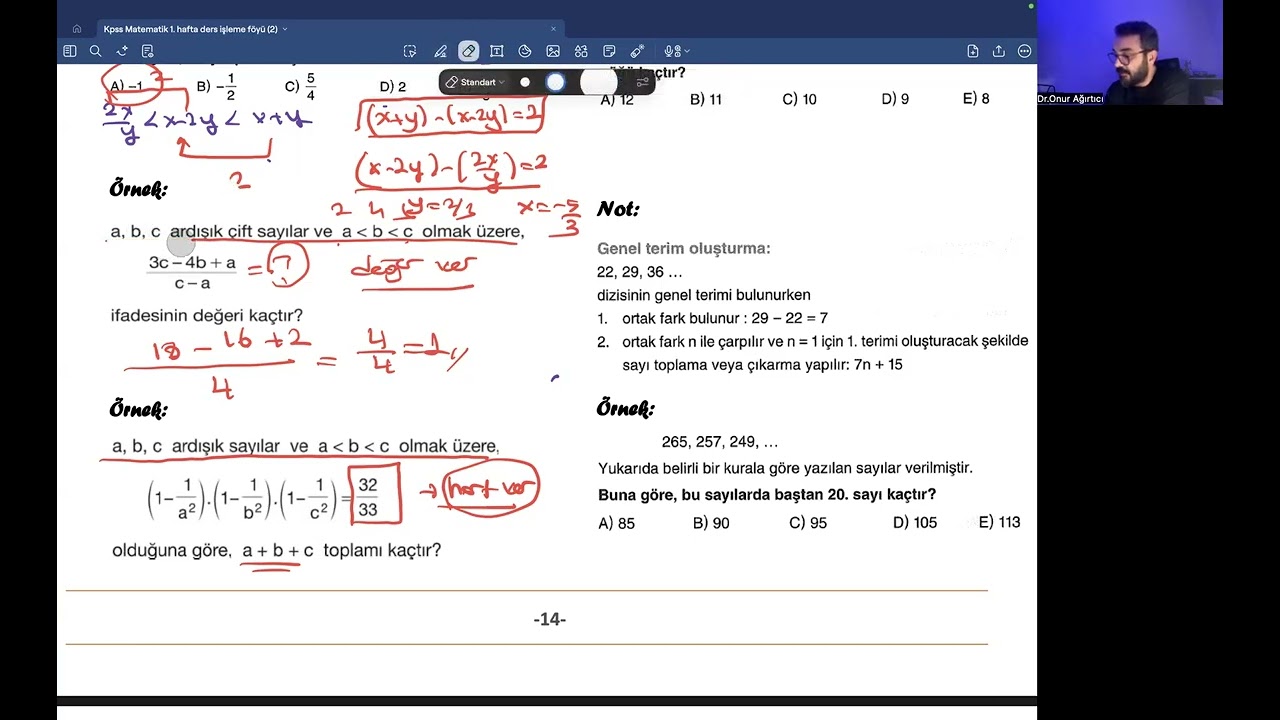 Kpss Matematik 1. hafta ders işleme föyü (2)
Standart
A) −1 B) −1/2 C) 5/4 D) 2
2x/y < x-2y < x+y
2
(x+y) - (x-2y) = 2
(x-2y) - (2x/y) = 2
y = 2/3 x = -5/3
Örnek:
2 4 6
a, b, c ardışık çift sayılar ve a < b < c olmak üzere,
(3c − 4b + a)/(c − a) = ?
değer ver
ifadesinin değeri kaçtır?
(18 - 16 + 2)/4 = 4/4 = 1
Örnek:
a, b, c ardışık sayılar ve a < b < c olmak üzere,
(1 − 1/a²).(1 − 1/b²).(1 − 1/c²) = 32/33
→ harf ver
olduğuna göre, a + b + c toplamı kaçtır?
kaçtır?
A) 12 B) 11 C) 10 D) 9 E) 8
Not:
Genel terim oluşturma:
22, 29, 36 ...
dizisinin genel terimi bulunurken
1. ortak fark bulunur : 29 − 22 = 7
2. ortak fark n ile çarpılır ve n = 1 için 1. terimi oluşturacak şekilde
sayı toplama veya çıkarma yapılır: 7n + 15
Örnek:
265, 257, 249, ...
Yukarıda belirli bir kurala göre yazılan sayılar verilmiştir.
Buna göre, bu sayılarda baştan 20. sayı kaçtır?
A) 85 B) 90 C) 95 D) 105 E) 113
-14-
Dr.Onur Ağırtıcı